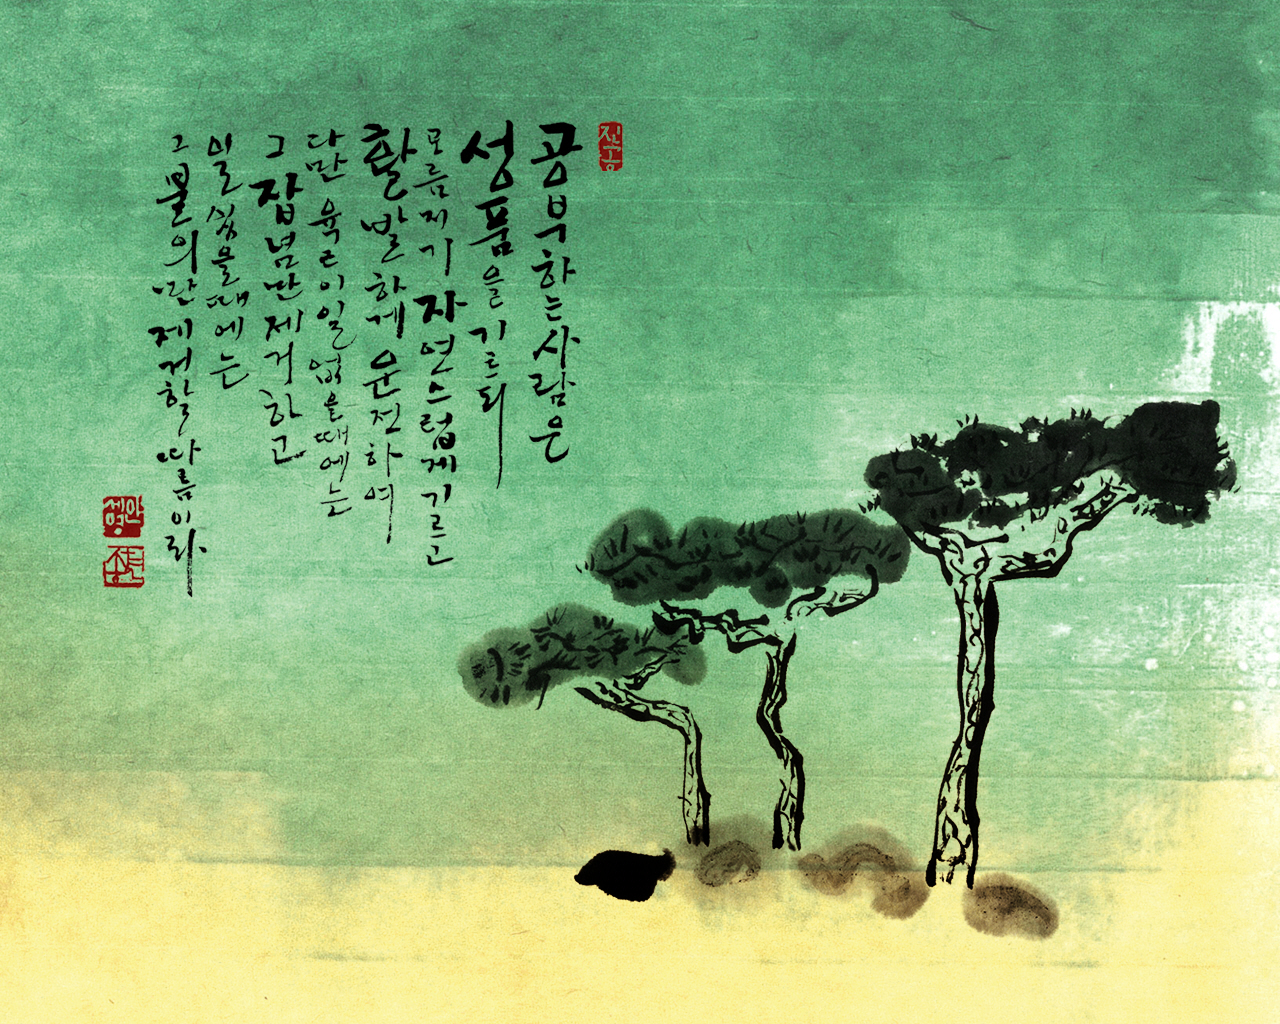 공부하는사람은
성품을기르되
모름지기자연스럽게기르고
활발하게운전하여
다만육근이일없을때에는
그잡념만제거하고
일있을때에는
그불의만제거할따름이라
안세명